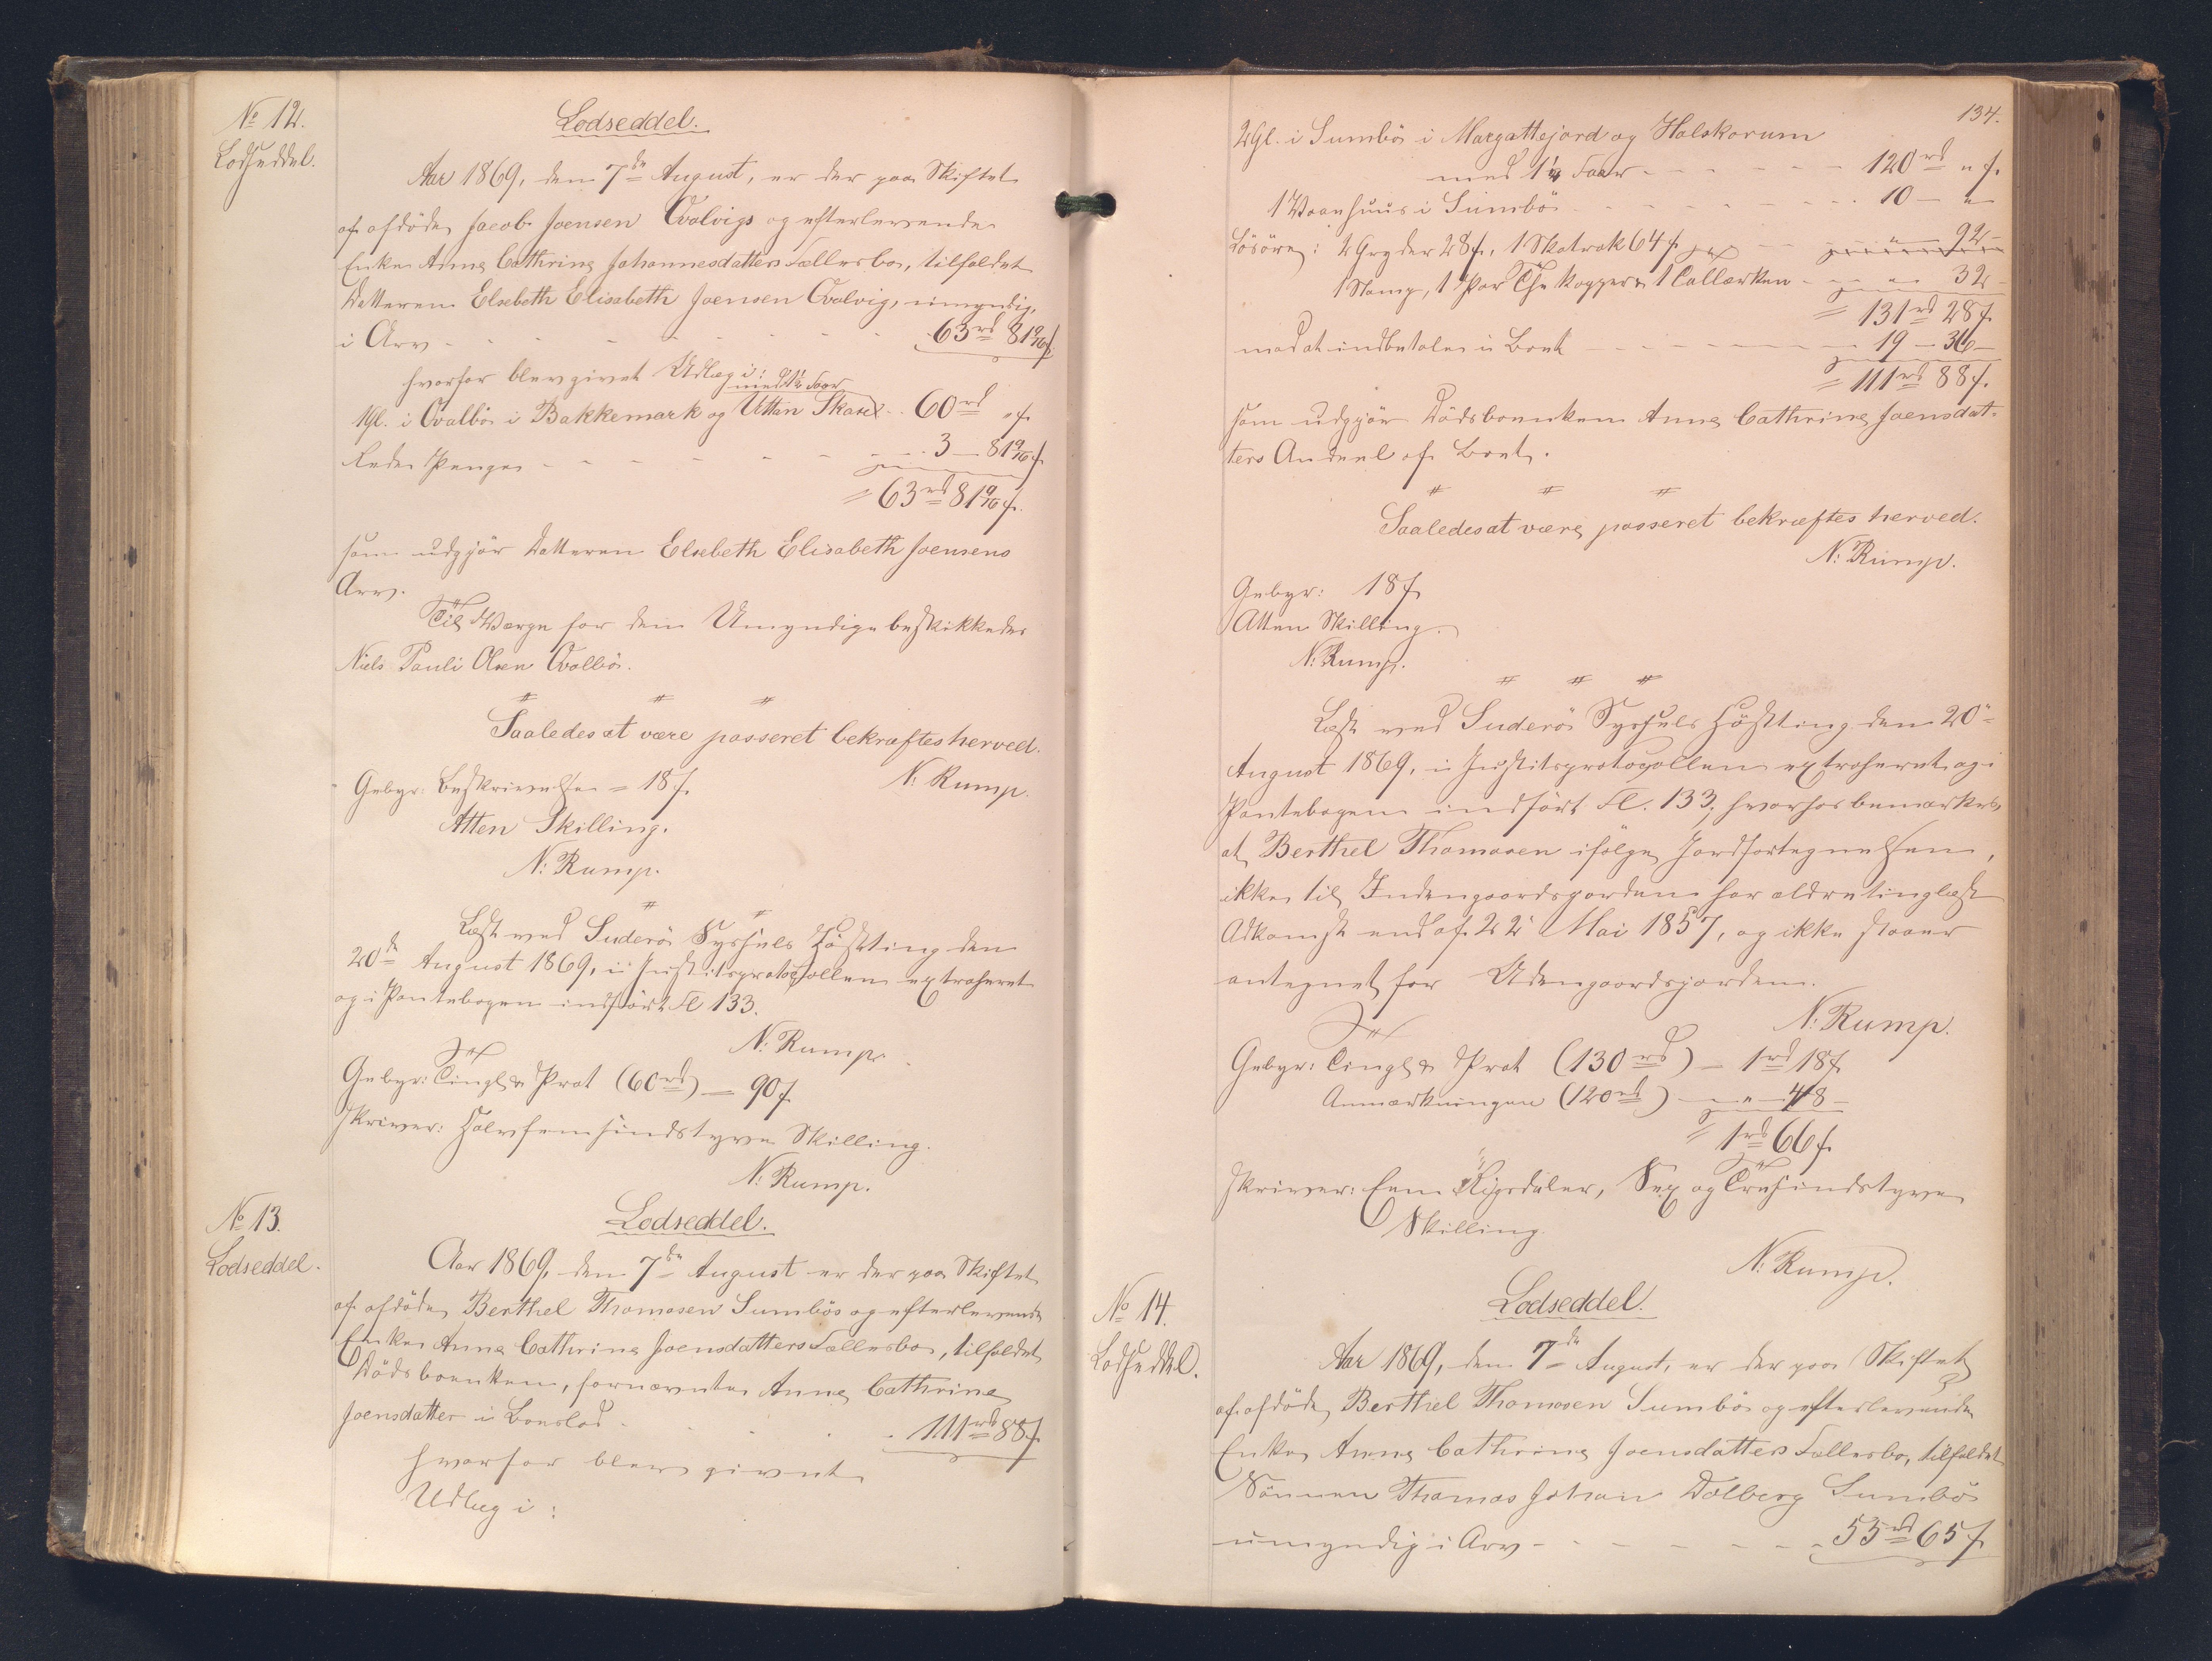 No 12.
Lodseddel.
Lodseddel.
Aar 1869, den 7de August, er der paa Skiftet
af afdöde Jacob Joensen Qvalvigs og efterlevende
Enke Anna Cathrine Johannesdatters Fællesbo, tilfaldet
Datteren Elsebeth Elisabeth Joensen Qvalvig, umyndig,
i Arv - - - - - - 63rd 81 9/16 ß
hvorfor blev givet Udlæg i:
med 1/2 Faar
1 Gl. i Qvalbö i Bakkemark og Uttan Skard - 60rd " ß
Rede Penge - - - - - - 3 - 81 9/16 ß
= 63rd 81 9/16 ß.
som udgjör Datteren Elsebeth Elisabeth Joensens
Arv.
Til Værge for den Umyndige beskikkedes
Niels Pauli Olsen Qvalbö.
Saaledes at være passeret bekræftes herved.
N. Rump.
Gebyr: Beskrivelse = 18 ß.
Atten Skilling.
N. Rump.
Læst ved Suderö Syssels Höstting den
20de August 1869, i Justitsprotocollen extraheret
og i Pantebogen indfört Fl 133.
N. Rump.
Gebyr: Tingl & Prot (60rd) - 90 ß
skriver: Halvfemsindstyve Skilling.
N. Rump.
No 13.
Lodseddel.
Lodseddel.
Aar 1869, den 7de August er der paa Skiftet
af afdöde Berthel Thomasen Sumbös og efterlevende
Enke Anna Cathrine Joensdatters Fællesbo, tilfaldet
Dödsboenken, fornævnte Anna Cathrine
Joensdatter i Boeslod - - - 111rd 88 ß
hvorfor blev givet
Udlæg i:
134.
2 Gl. i Sumbö i Margattejord og Halskorum
med 1 1/4 Faar - - - - - 120rd " ß.
1 Vaanhuus i Sumbö - - - - - 10 - "
Lösöre: 2 Gryder 28 ß, 1 Skatrak 64 ß - - " - 92 -
1 Stamp, 1 Par Thekopper & 1 Tallerken - - " - 32 -
= 131rd 28 ß.
mod at indbetale i Boet - - - - - 19 - 36 -
= 111rd 88 ß.
som udgjör Dödsboenken Anna Cathrine Joensdat-
ters Andeel af Boet.
Saaledes at være passeret bekræftes herved.
N. Rump.
Gebyr: 18 ß
Atten Skilling.
N. Rump.
Læst ved Suderö Syssels Höstting den 20de
August 1869, i Justitsprotocollen extraheret og i
Pantebogen indfört Fl. 133; hvorhos bemærkes,
at Berthel Thomasen ifölge Jordfortegnelsen,
ikke til Indengaardsjorden har ældre tinglæst
Adkomst end af 22 Mai 1857, og ikke staaer
antegnet for Udengaardsjorden.
N. Rump.
Gebyr: Tingl & Prot (130rd) - 1rd 18 ß
Anmærkningen (120rd) - " - 48 -
= 1rd 66 ß
skriver: Een Rigsdaler, Sex og Tresindstyve
Skilling.
N. Rump.
No 14.
Lodseddel.
Lodseddel.
Aar 1869, den 7de August, er der paa Skiftet
af afdöde Berthel Thomasen Sumbö og efterlevende
Enke Anna Cathrine Joensdatters Fællesbo, tilfaldet
Sönnen Thomas Johan Dalberg Sumbö
umyndig i Arv - - - - - - 55rd 65 ß